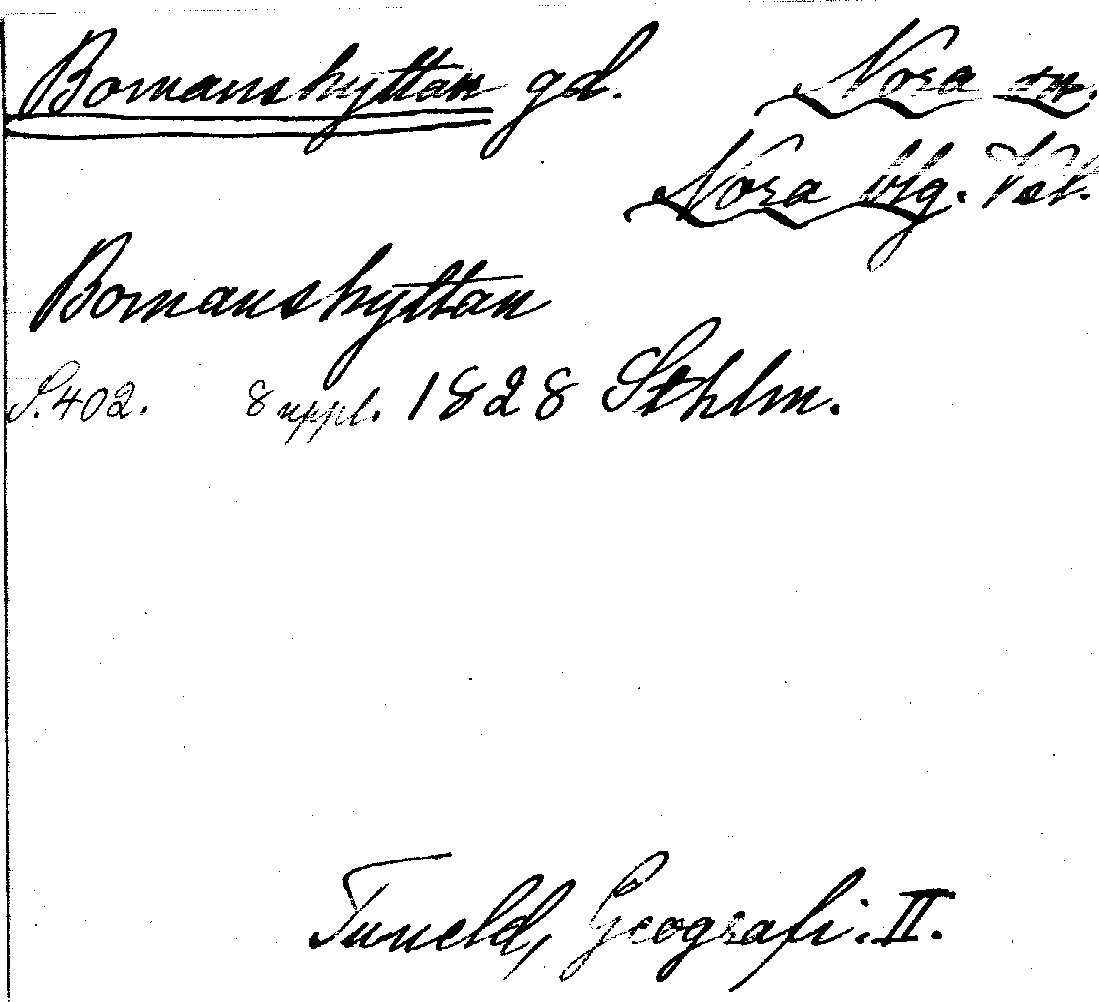 Bomanshyttan gd. Nora sn.
Nora bg. Vstl.
Bomanshyttan
S. 402. 8 uppl. 1828 Sthlm.
Tuneld, Geografi. II.